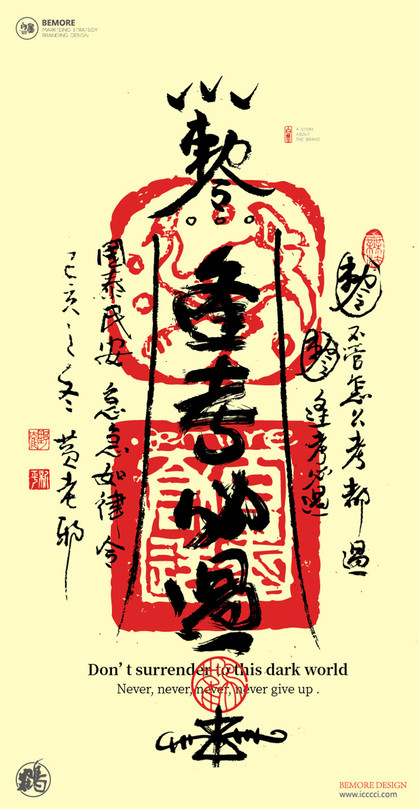 BEMORE
MARKETING STRATEGY
BRANDING DESIGN
A STORY
ABOUT
THE BRAND
敕令
逢考必過
敕令
不管怎么考都過
敕令
逢考必過
國泰民安 急急如律令
己亥之冬 黄老邪
Don't surrender to this dark world
Never, never, never, never give up .
BEMORE DESIGN
www.icccci.com